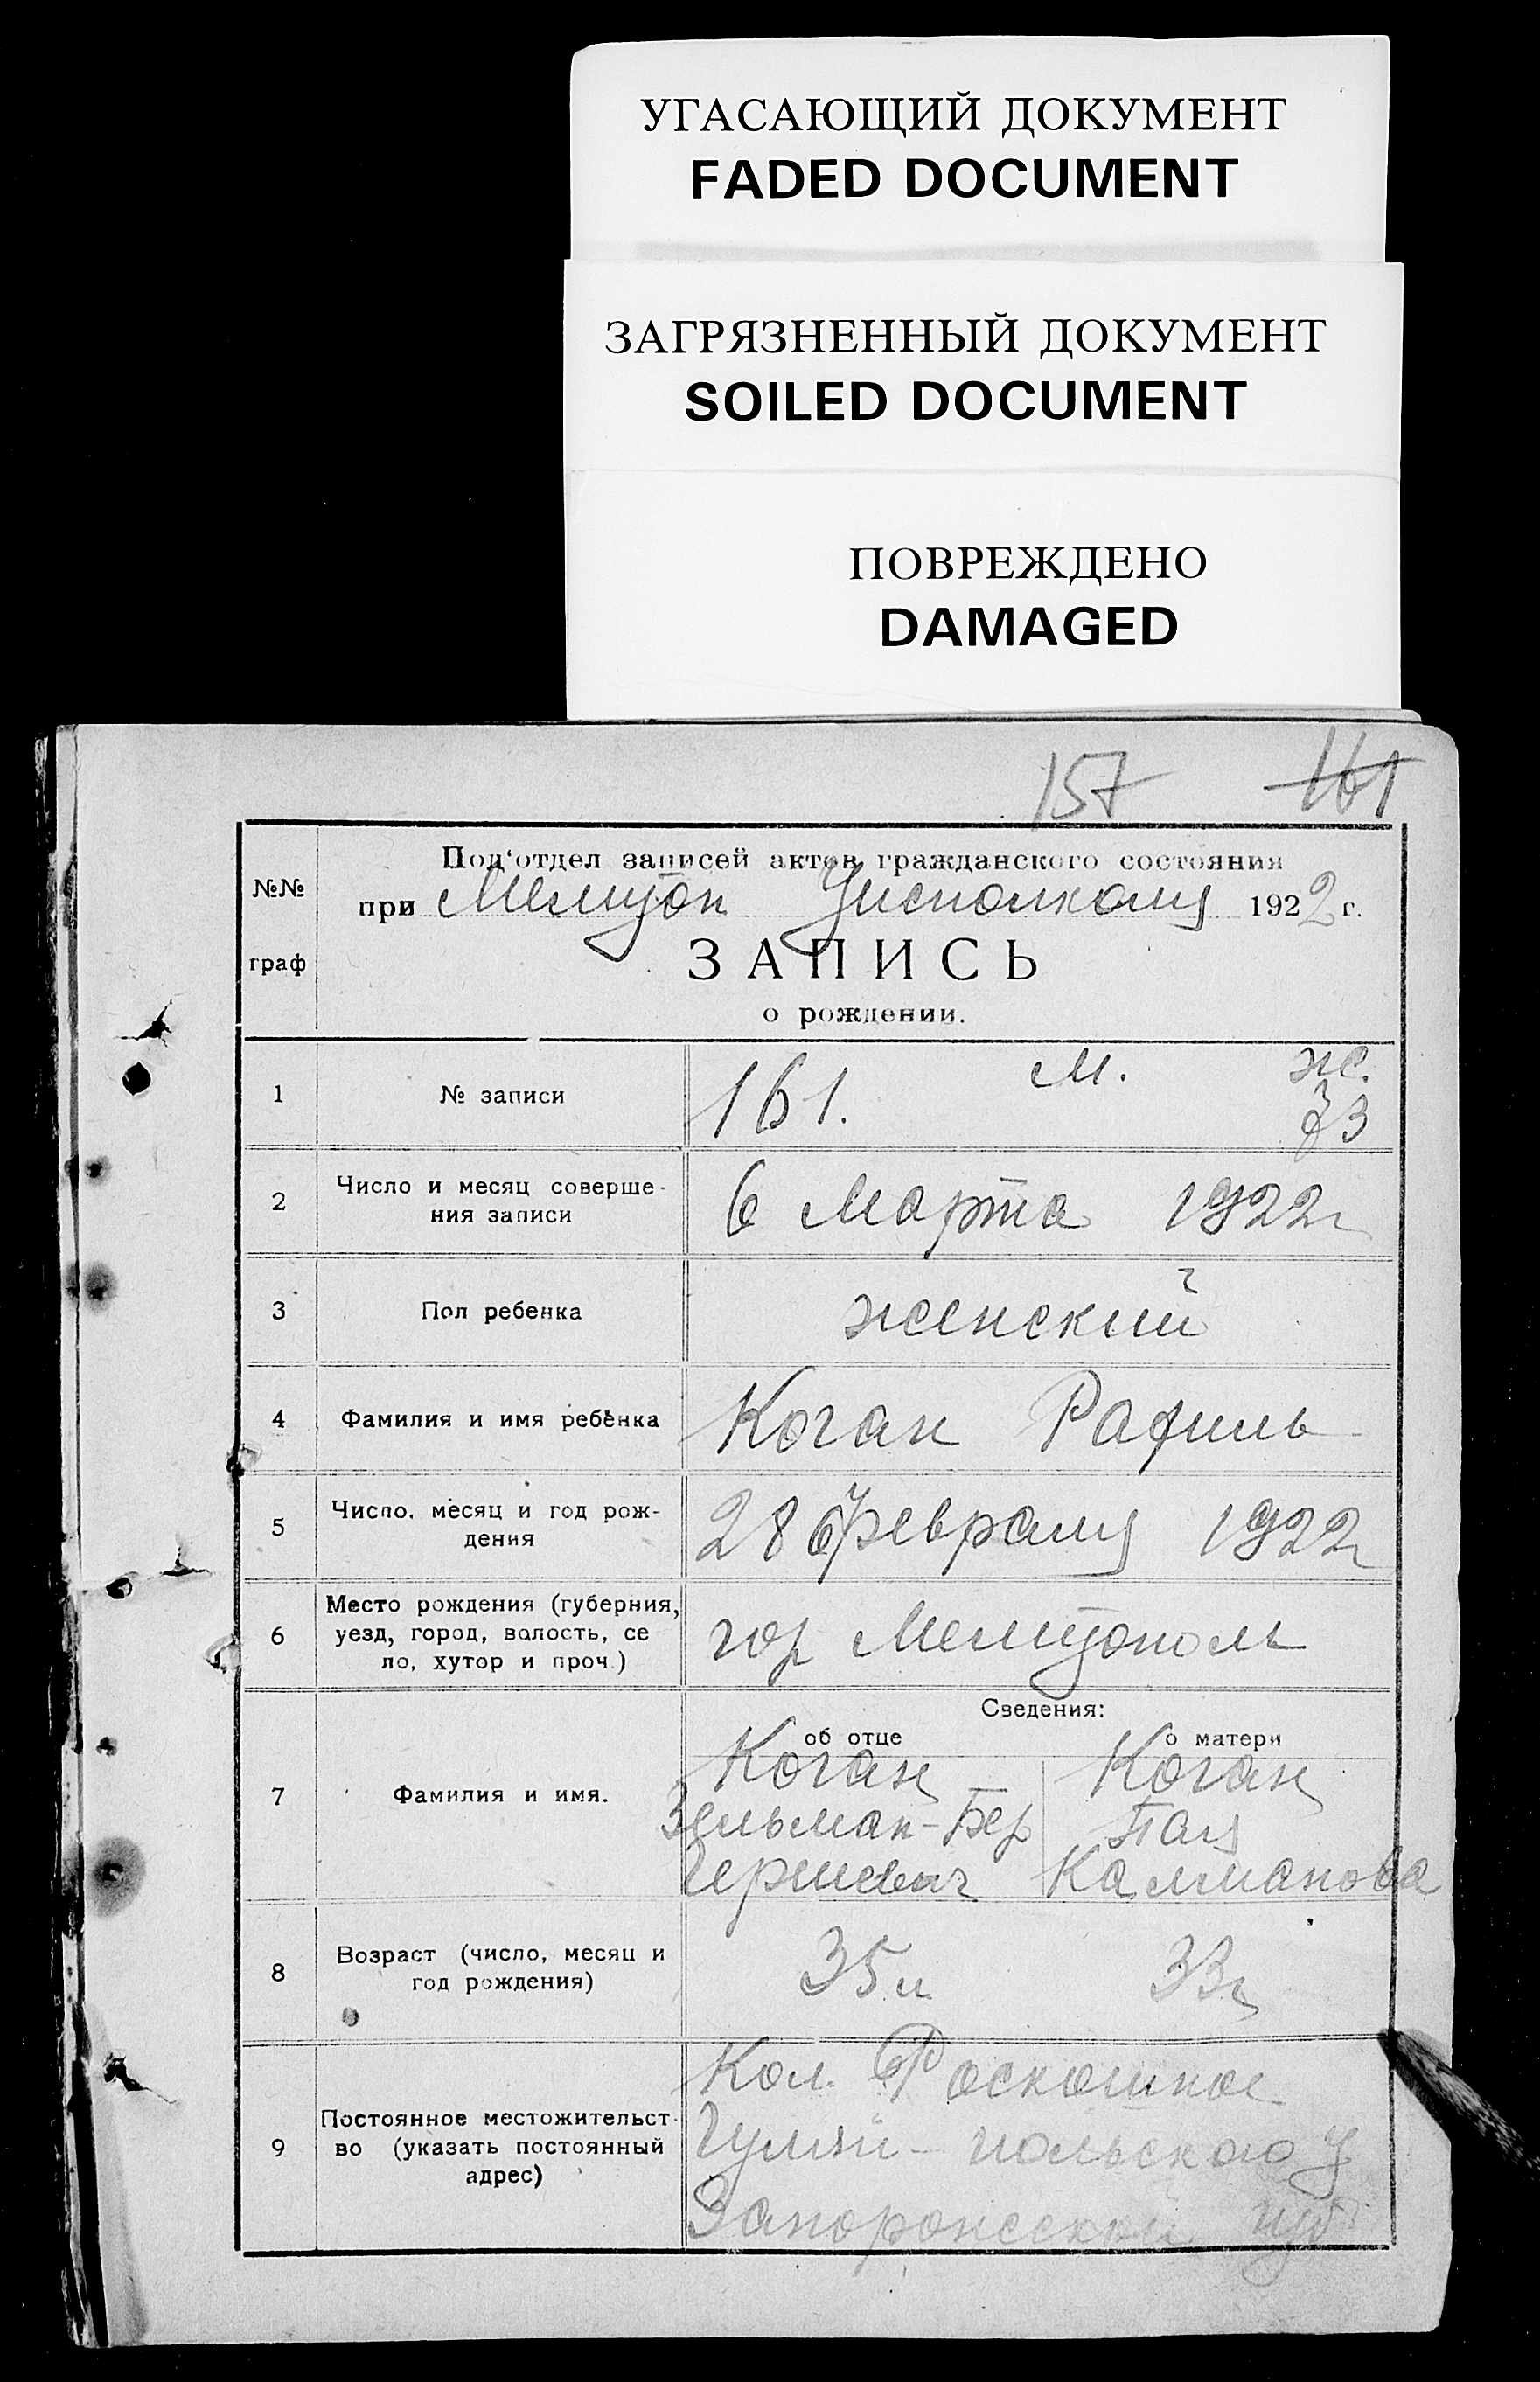 УГАСАЮЩИЙ ДОКУМЕНТ
FADED DOCUMENT
ЗАГРЯЗНЕННЫЙ ДОКУМЕНТ
SOILED DOCUMENT
ПОВРЕЖДЕНО
DAMAGED
157 161
№№ граф
Под'отдел записей актов гражданского состояния
при Мелитоп Уисполкома 1922 г.
ЗАПИСЬ
о рождении.
м. ж.
1 № записи 161. 73
2 Число и месяц соверше-
ния записи
6 Марта 1922 г
3 Пол ребенка женский
4 Фамилия и имя ребенка Коган Рафиль
5 Число, месяц и год рож-
дения
28 февраля 1922 г
6 Место рождения (губерния,
уезд, город, волость, се
ло, хутор и проч.)
гор Мелитополь
Сведения:
об отце о матери
7 Фамилия и имя.
Коган Коган
Зельман-Бер
Гершевич Калманова
8 Возраст (число, месяц и
год рождения)
35 л 33 г
9 Постоянное местожительст-
во (указать постоянный
адрес)
Кол. Роскошное
Гуляй-польского у
Запорожской губ